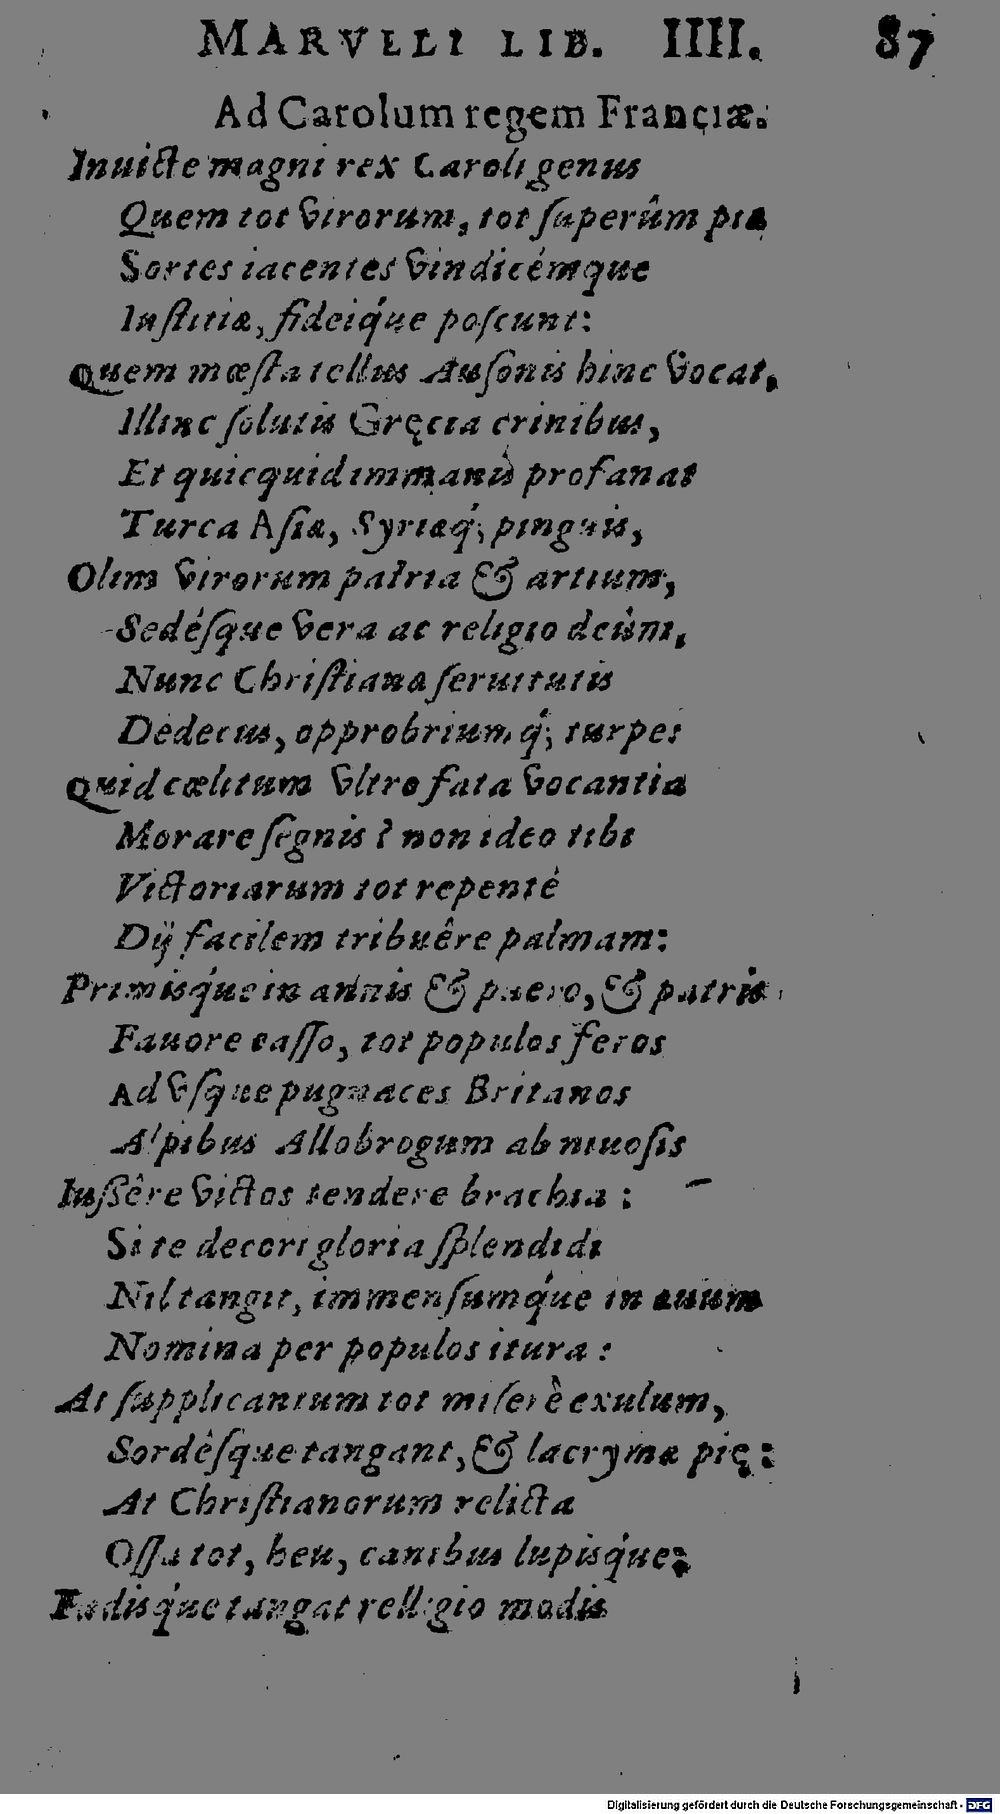 MARVLLI LIB. IIII. 87
Ad Carolum regem Franciæ.
Inuicte magni rex Caroli genus
Quem tot virorum, tot ſuperûm pia
Sortes iacentes vindicémque
Iuſtitiæ, fideiq́ue poſcunt:
Quem mœſta tellus Auſonis hinc vocat,
Illinc ſolutis Gręcia crinibus,
Et quicquid immanis profanat
Turca Aſiæ, Syriæq́; pinguis,
Olim virorum patria & artium,
Sedéſque vera ac religio deûm,
Nunc Chriſtiana ſeruitutis
Dedecus, opprobriumq́; turpe:
Quid cœlitum vltro fata vocantia
Morare ſegnis? non ideo tibi
Victoriarum tot repentè
Dij facilem tribuêre palmam:
Primisq́ue in annis & puero, & patris
Fauore caſſo, tot populos feros
Ad vſque pugnaces Britanos
Alpibus Allobrogum ab niuoſis
Iuſſêre victos tendere brachia:
Si te decori gloria ſplendidi
Nil tangit, immenſumq́ue in æuum
Nomina per populos itura:
At ſupplicantum tot miſerè exulum,
Sordéſque tangant, & lacrymæ pię:
At Chriſtianorum relicta
Oſſa tot, heu, canibus lupisq́ue:
Fœdisq́ue tangat relligio modis
Digitalisierung gefördert durch die Deutsche Forschungsgemeinschaft - DFG